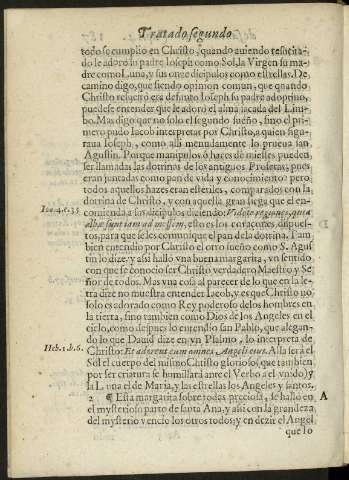 Tratado segundo
todo se cumplio en Christo, quando auiendo resucita-
do le adorò su padre Ioseph como Sol, la Virgen su ma
dre como Luna, y sus onze discipulos como estrellas. De
camino digo, que siendo opinion comun, que quando
Christo resucitò era difunto Ioseph su padre adoptiuo,
puedese entender que le adorò el alma sacada del Lim-
bo. Mas digo que no solo el segundo sueño, sino el pri-
mero pudo Iacob interpretar por Christo, a quien figu-
raua Ioseph, como alli mendudamente lo prueua san
Agustin. Porque manipulos ò haces de miesses pueden
ser llamadas las dotrinas de los antiguos Profetas, pues
eran juntadas como pan de vida y conocimiento: pero
todos aquellos hazes eran esteriles, comparados con la
dotrina de Christo, y con aquella gran siega que el en-
Ioa.4.e.35
comienda a sus dicipulos diziendo: Videte regiones, quia
albæ sunt iam ad messem, estos los coraçones dispues-
tos, para que ellos comunique el pan de la dotrina. Tam
bien entendio por Christo el otro sueño como S. Agus
tin lo dize: y assi hallò vna buena margarita, vn sentido
con que se conocio ser Christo verdadero Maestro y Se
ñor de todos. Mas vna cosa al parecer de lo que en la le-
tra dize no muestra entender Iacob, y es que Christo no
solo es adorado como Rey poderoso de los hombres en
la tierra, sino tambien como Dios de los Angeles en el
cielo, como despues lo entendio san Pablo, que alegan-
do lo que Dauid dize en vn Psalmo, lo interpreta de
Heb.1.b.6.
Christo: Et adorent eum omnes Angeli eius. Alla serà el
Sol el cuerpo del mismo Christo glorioso, que tambien
por ser criatura se humillarà ante el Verbo a el vnido; y
la Luna el de Maria, y las estrellas los Angeles y santos.
2 ¶ Esta margarita sobre todas preciosa, se hallò en A
el mysterioso parto de santa Ana, y assi con la grandeza
del mysterio vencio los otros todos: y en dezir el Angel
que lo